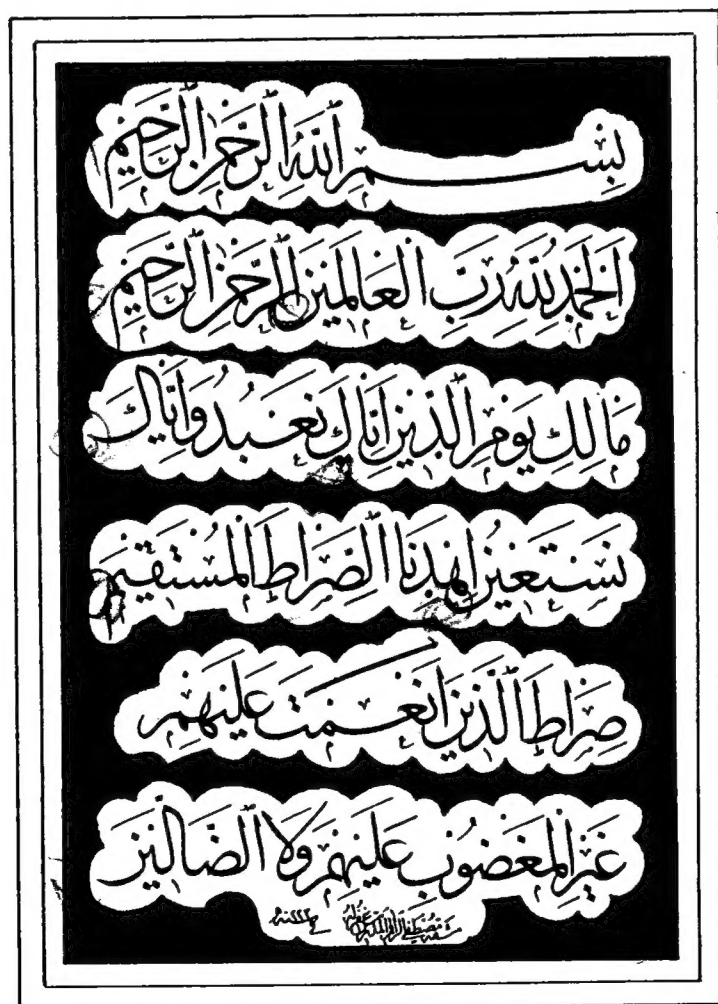 بِسْمِ ٱللّٰهِ ٱلرَّحْمٰنِ ٱلرَّحِيمِ
اَلْحَمْدُ لِلّٰهِ رَبِّ الْعَالَمِينَ الرَّحْمٰنِ الرَّحِيمِ
مَالِكِ يَوْمِ الدِّينِ اِيَّاكَ نَعْبُدُ وَاِيَّاكَ
نَسْتَعِينُ اِهْدِنَا الصِّرَاطَ الْمُسْتَقِيمَ
صِرَاطَ الَّذِينَ اَنْعَمْتَ عَلَيْهِمْ
غَيْرِ الْمَغْضُوبِ عَلَيْهِمْ وَلَا الضَّالِّينَ